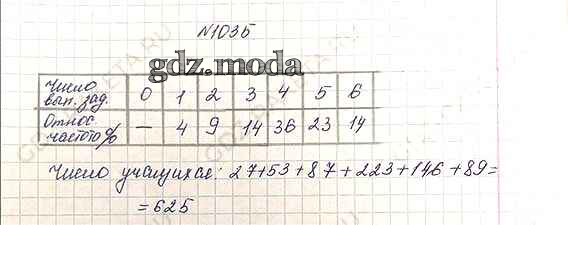 №1035
gdz.moda
Число вып. зад. 0 1 2 3 4 5 6
Относ частота % — 4 9 14 36 23 14
Число учащихся: 27+53+87+223+146+89=
=625